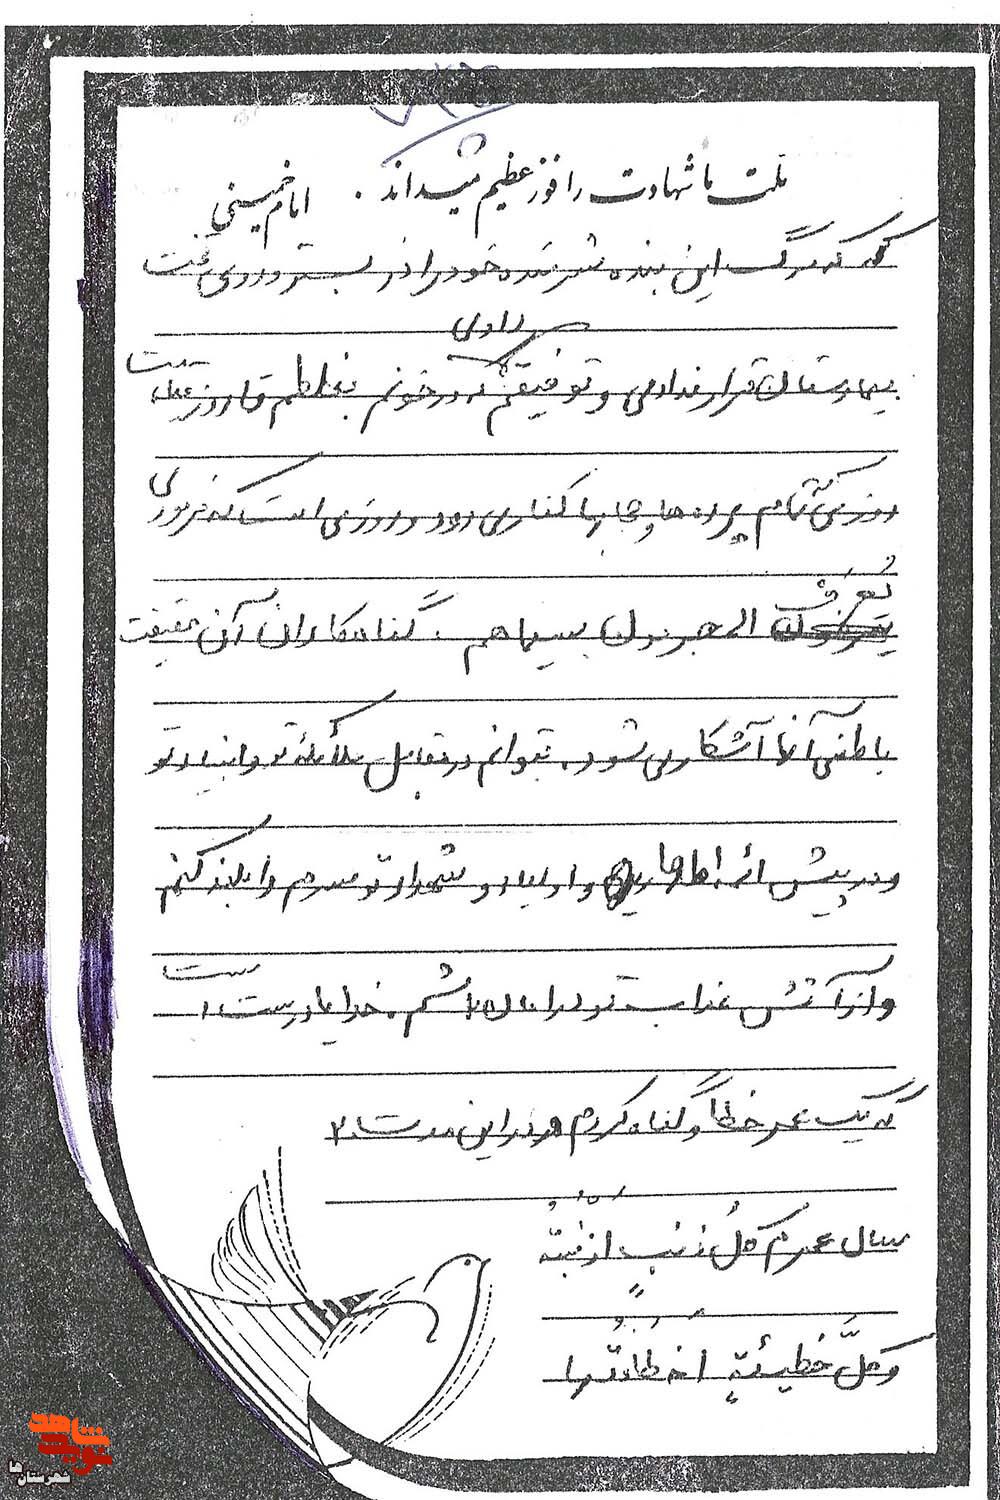 ملت ما شهادت را فوز عظیم میداند. امام خمینی
که مرگ این بنده شرمنده خود را در بستر و روی تخت
بیمارستان قرار ندادی و توفیقم دادی که در خونم بغلطم تا روز
روزی که تمام پرده ها و حجابها کنار می رود و روزی است که فرمودی
تُعرَفُ المجرمون بسیماهم. گناهکاران آن حقیقت
باطنی آنها آشکار می شود. بتوانم در مقابل ملائکه تو و انبیاء تو
و در پیش ائمه اطهار و اولیاء و شهداء تو سرم را بلند کنم
و از آتش عذاب تو در امان باشم. خدایا درست است
که یک عمر خطا و گناه کردم و در این مدت ۲۰
سال عمرم کُلُّ ذنبٍ اذنبتُه
و کلَّ خطیئةٍ اخطأتُها
نوید شاهد
شهرستان ها